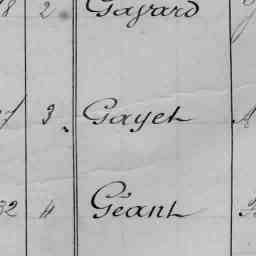 8 2 Gayard
3 Gayet A
32 4 Géant